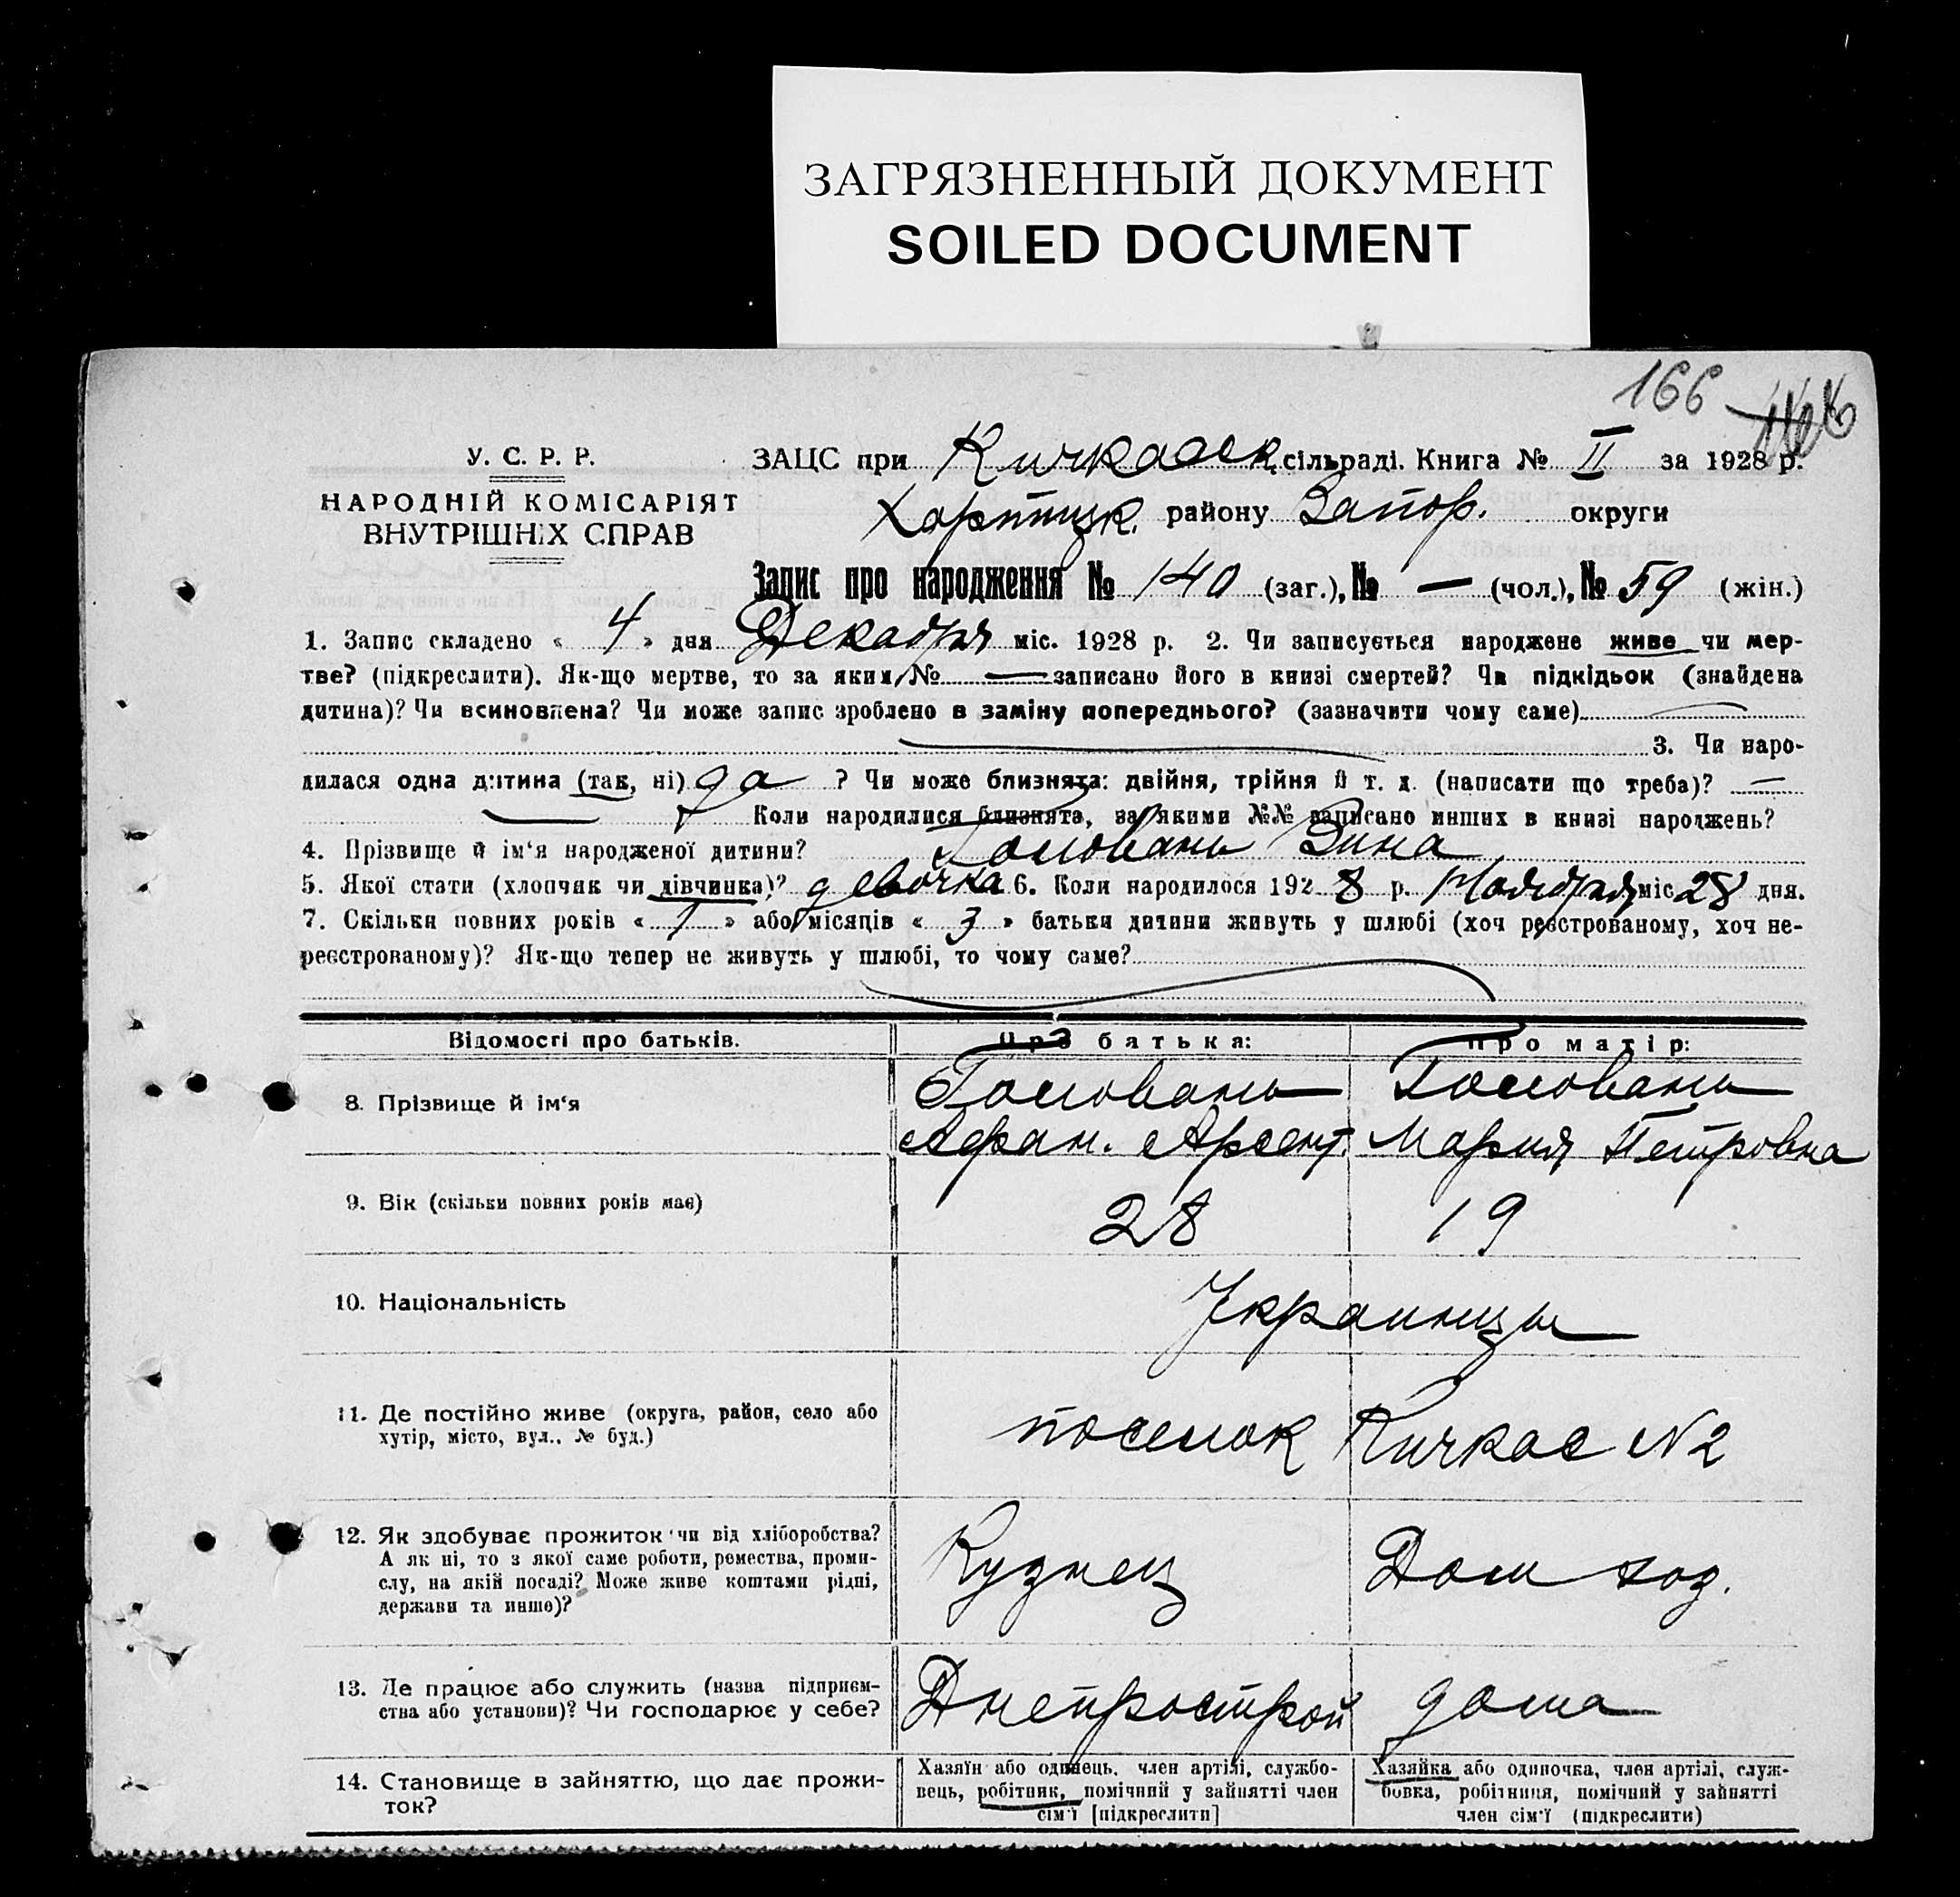 ЗАГРЯЗНЕННЫЙ ДОКУМЕНТ
SOILED DOCUMENT
166
У. С. Р. Р.
НАРОДНІЙ КОМІСАРІЯТ
ВНУТРІШНІХ СПРАВ
ЗАЦС при Кичкасск. сільраді. Книга № II за 1928 р.
Хортицк. району Запор. округи
Запис про народження № 140 (заг.), № — (чол.), № 59 (жін.)
1. Запис складено « 4 » дня Декабря міс. 1928 р. 2. Чи записується народжене живе чи мер-
тве? (підкреслити). Як-що мертве, то за яким № — записано його в книзі смертей? Чи підкідьок (знайдена
дитина)? Чи всиновлена? Чи може запис зроблено в заміну попереднього? (зазначити чому саме)
3. Чи наро-
дилася одна дитина (так, ні) да ? Чи може близнята: двійня, трійня й т. д. (написати що треба)? —
Коли народилися близнята, за якими №№ записано инших в книзі народжень?
4. Прізвище й ім‘я народженої дитини? Головань Зина
5. Якої стати (хлопчик чи дівчинка)? девочка 6. Коли народилося 192 8 р. Ноября міс 28 дня.
7. Скільки повних років « 1 » або місяців « 3 » батьки дитини живуть у шлюбі (хоч реєстрованому, хоч не-
реєстрованому)? Як-що тепер не живуть у шлюбі, то чому саме?
Відомості про батьків. Про батька: Про матір:
8. Прізвище й ім‘я Головань Головань
Афан. Арсент. Мария Петровна
9. Вік (скільки повних років має) 28 19
10. Національність Украинцы
11. Де постійно живе (округа, район, село або
хутір, місто, вул., № буд.) поселок Кичкас №2
12. Як здобуває прожиток чи від хліборобства?
А як ні, то з якої саме роботи, ремества, проми-
слу, на якій посаді? Може живе коштами рідні,
держави та инше)? Кузнец Дом хоз.
13. Де працює або служить (назва підприєм-
ства або установи)? Чи господарює у себе? Днепрострой дома
14. Становище в зайняттю, що дає прожи-
ток?
Хазяїн або одинець, член артілі, службо-
вець, робітник, помічний у зайнятті член
сім‘ї [підкреслити]
Хазяйка або одиночка, член артілі, служ-
бовка, робітниця, помічний у зайнятті
член сім‘ї (підкреслити)